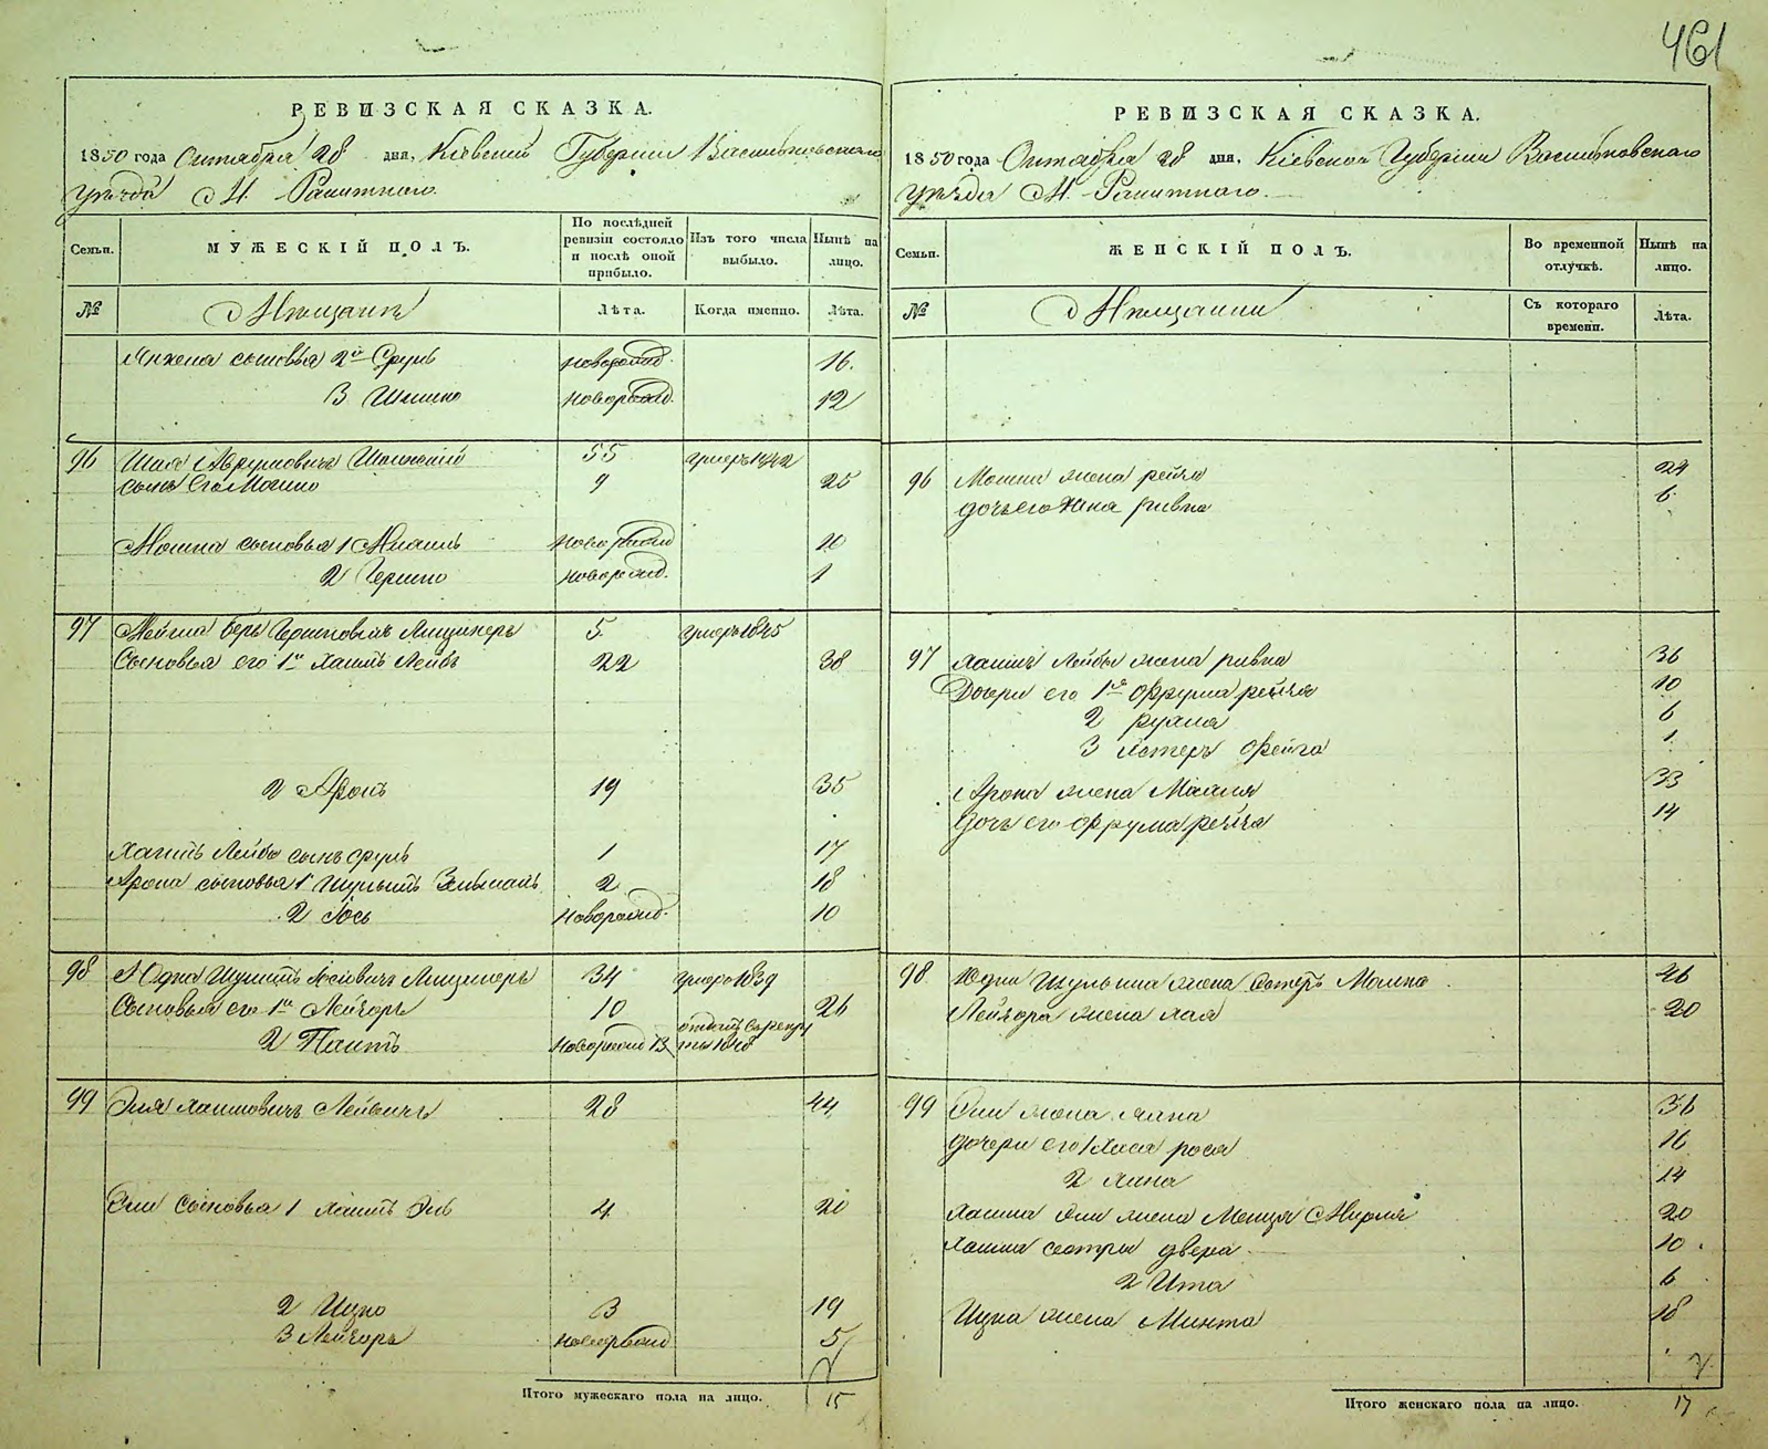 461
РЕВИЗСКАЯ СКАЗКА.
1850 года Октября 28 дня, Кіевской Губерніи Васильковского
уѣзда М. Ракитного
Семьи.
МУЖЕСКІЙ ПОЛЪ.
По послѣдней ревизіи состояло и послѣ оной прибыло.
Изъ того числа выбыло.
Нынѣ на лицо.
№
Мѣщане
Лѣта.
Когда именно.
Лѣта.
сыновья 2й Сруль новорожд. 16.
3 Шмилко новорожд. 12
96 Шая Аврумовичъ 55 умеръ 1842
сынъ его Мошко 9 25
Мошка сыновья 1 новорожд 10
2 Гершко новорожд. 1
97 Мейша Беръ Гершковичъ Лищинеръ 5 умеръ 1845
Сыновья его 1й Хаимъ Лейбъ 22 38
2 Аронъ 19 35
Хаимъ Лейбы сынъ Сруль 1 17
Арона сыновья 1 Шулимъ Зельманъ 2 18
2 Іось новорожд. 10
98 Юдка Шулимъ Лищинеръ 34 умеръ 1839
Сыновья его 1й Лейзоръ 10 26
2 новорожд 13 отданъ въ рекруты 1848
99 Эля Хаимовичъ 28 44
Эли Сыновья 1 Хаимъ Эль 4 20
2 Ицко 3 19
3 Лейзоръ новорожд 5
Итого мужескаго пола на лицо. 15
РЕВИЗСКАЯ СКАЗКА.
1850 года Октября 28 дня, Кіевской Губерніи Васильковского
уѣзда М. Ракитного.
Семьи.
ЖЕНСКІЙ ПОЛЪ.
Во временной отлучкѣ.
Нынѣ на лицо.
№
Мѣщанки
Съ котораго времени.
Лѣта.
96 Мошка жена рейзя 24
дочь его Хана ривка 6
97 Хаимъ Лейбы жена ривка 36
Дочери его 1я Фрума рейза 10
2 рухля 6
3 Эстеръ Фейга 1
Арона жена Малля 33
Дочь его Фрума рейза 14
98 Юдки Шулима жена Эстеръ Малка 46
Лейзора жена Хая 20
99 Эли жена Хана 36
дочери его 1 Хася роса 16
2 Хана 14
Хаима Эли жена Мирля 20
Хаима сестры двера 10
2 Ита 6
Ицка жена Минта 18
Итого женскаго пола на лицо. 17